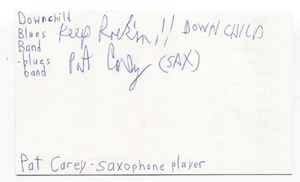 Downchild
Blues
Band
-blues
band
Keep Rock'n!! DOWNCHILD
Pat Carey (SAX)
Pat Carey - saxophone player